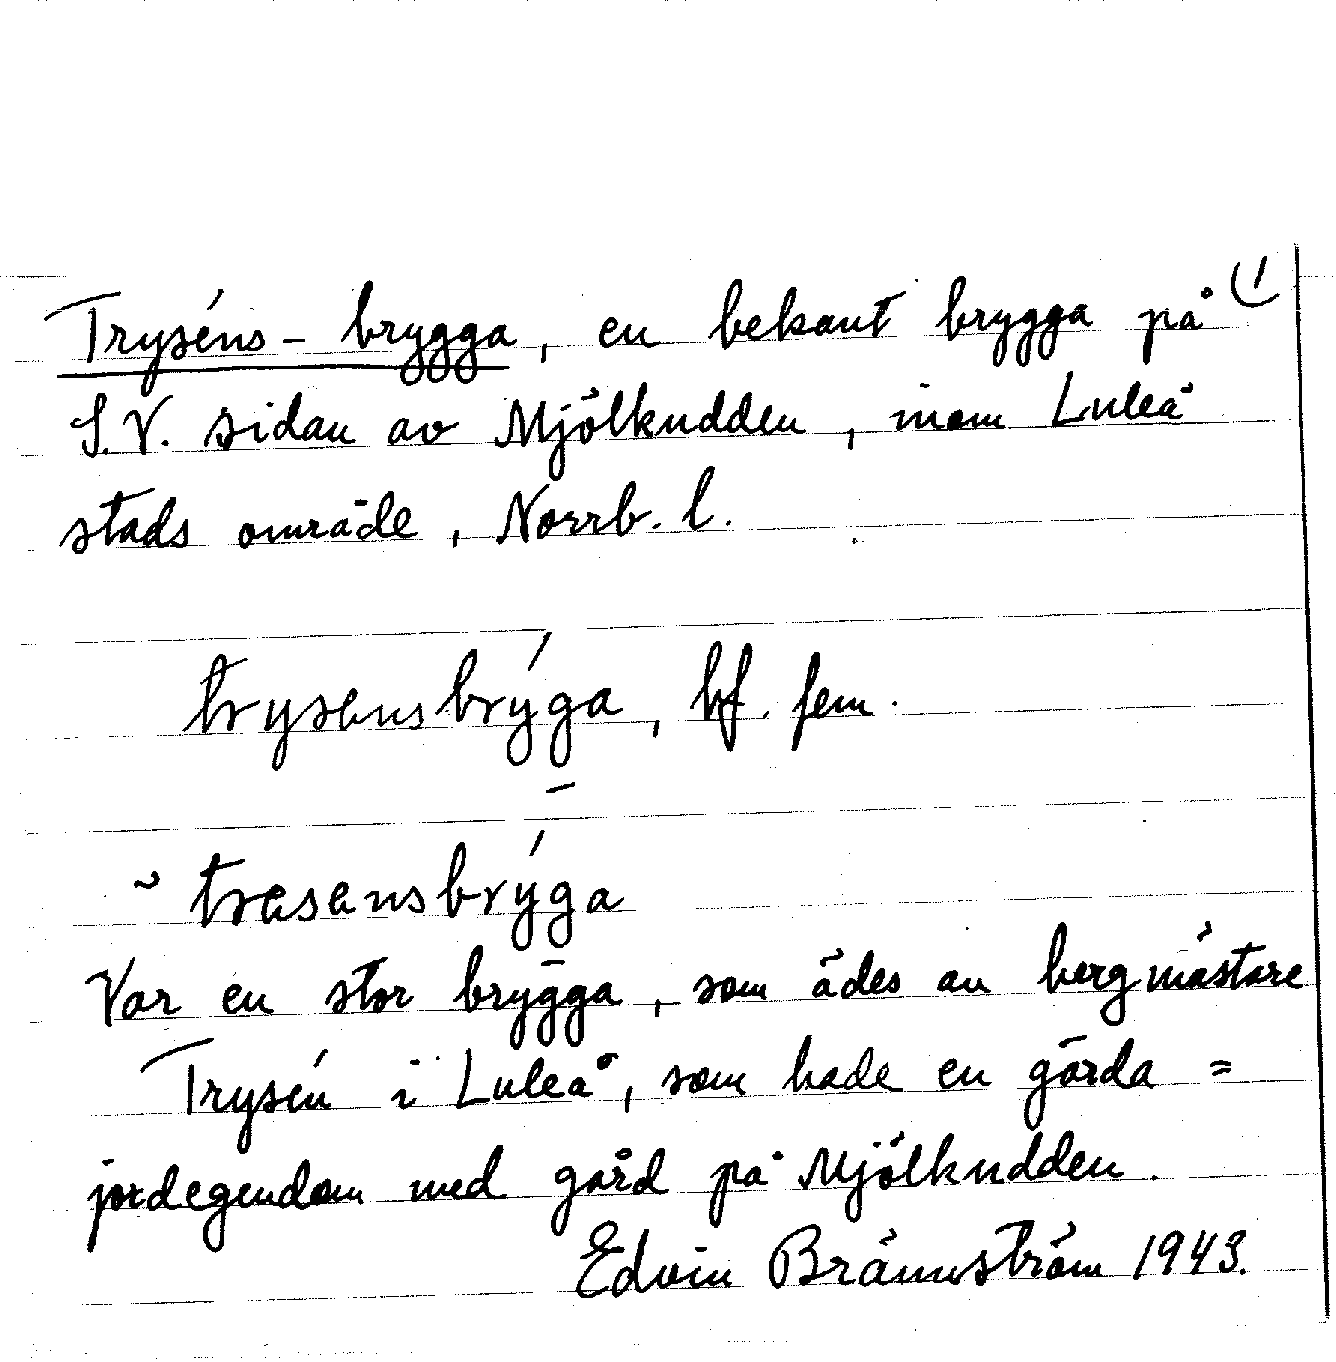 Tryséns-brygga, en bekant brygga på (1
S.V. sidan av Mjölkudden, inom Luleå
stads område, Norrb. l.
trysensbryga, bf. fem.
~ tresensbryga
Var en stor brygga, som ädes av bergmästare
Trysén i Luleå, som hade en gärda =
jordegendom med gård på Mjölkudden.
Edvin Brännström 1943.